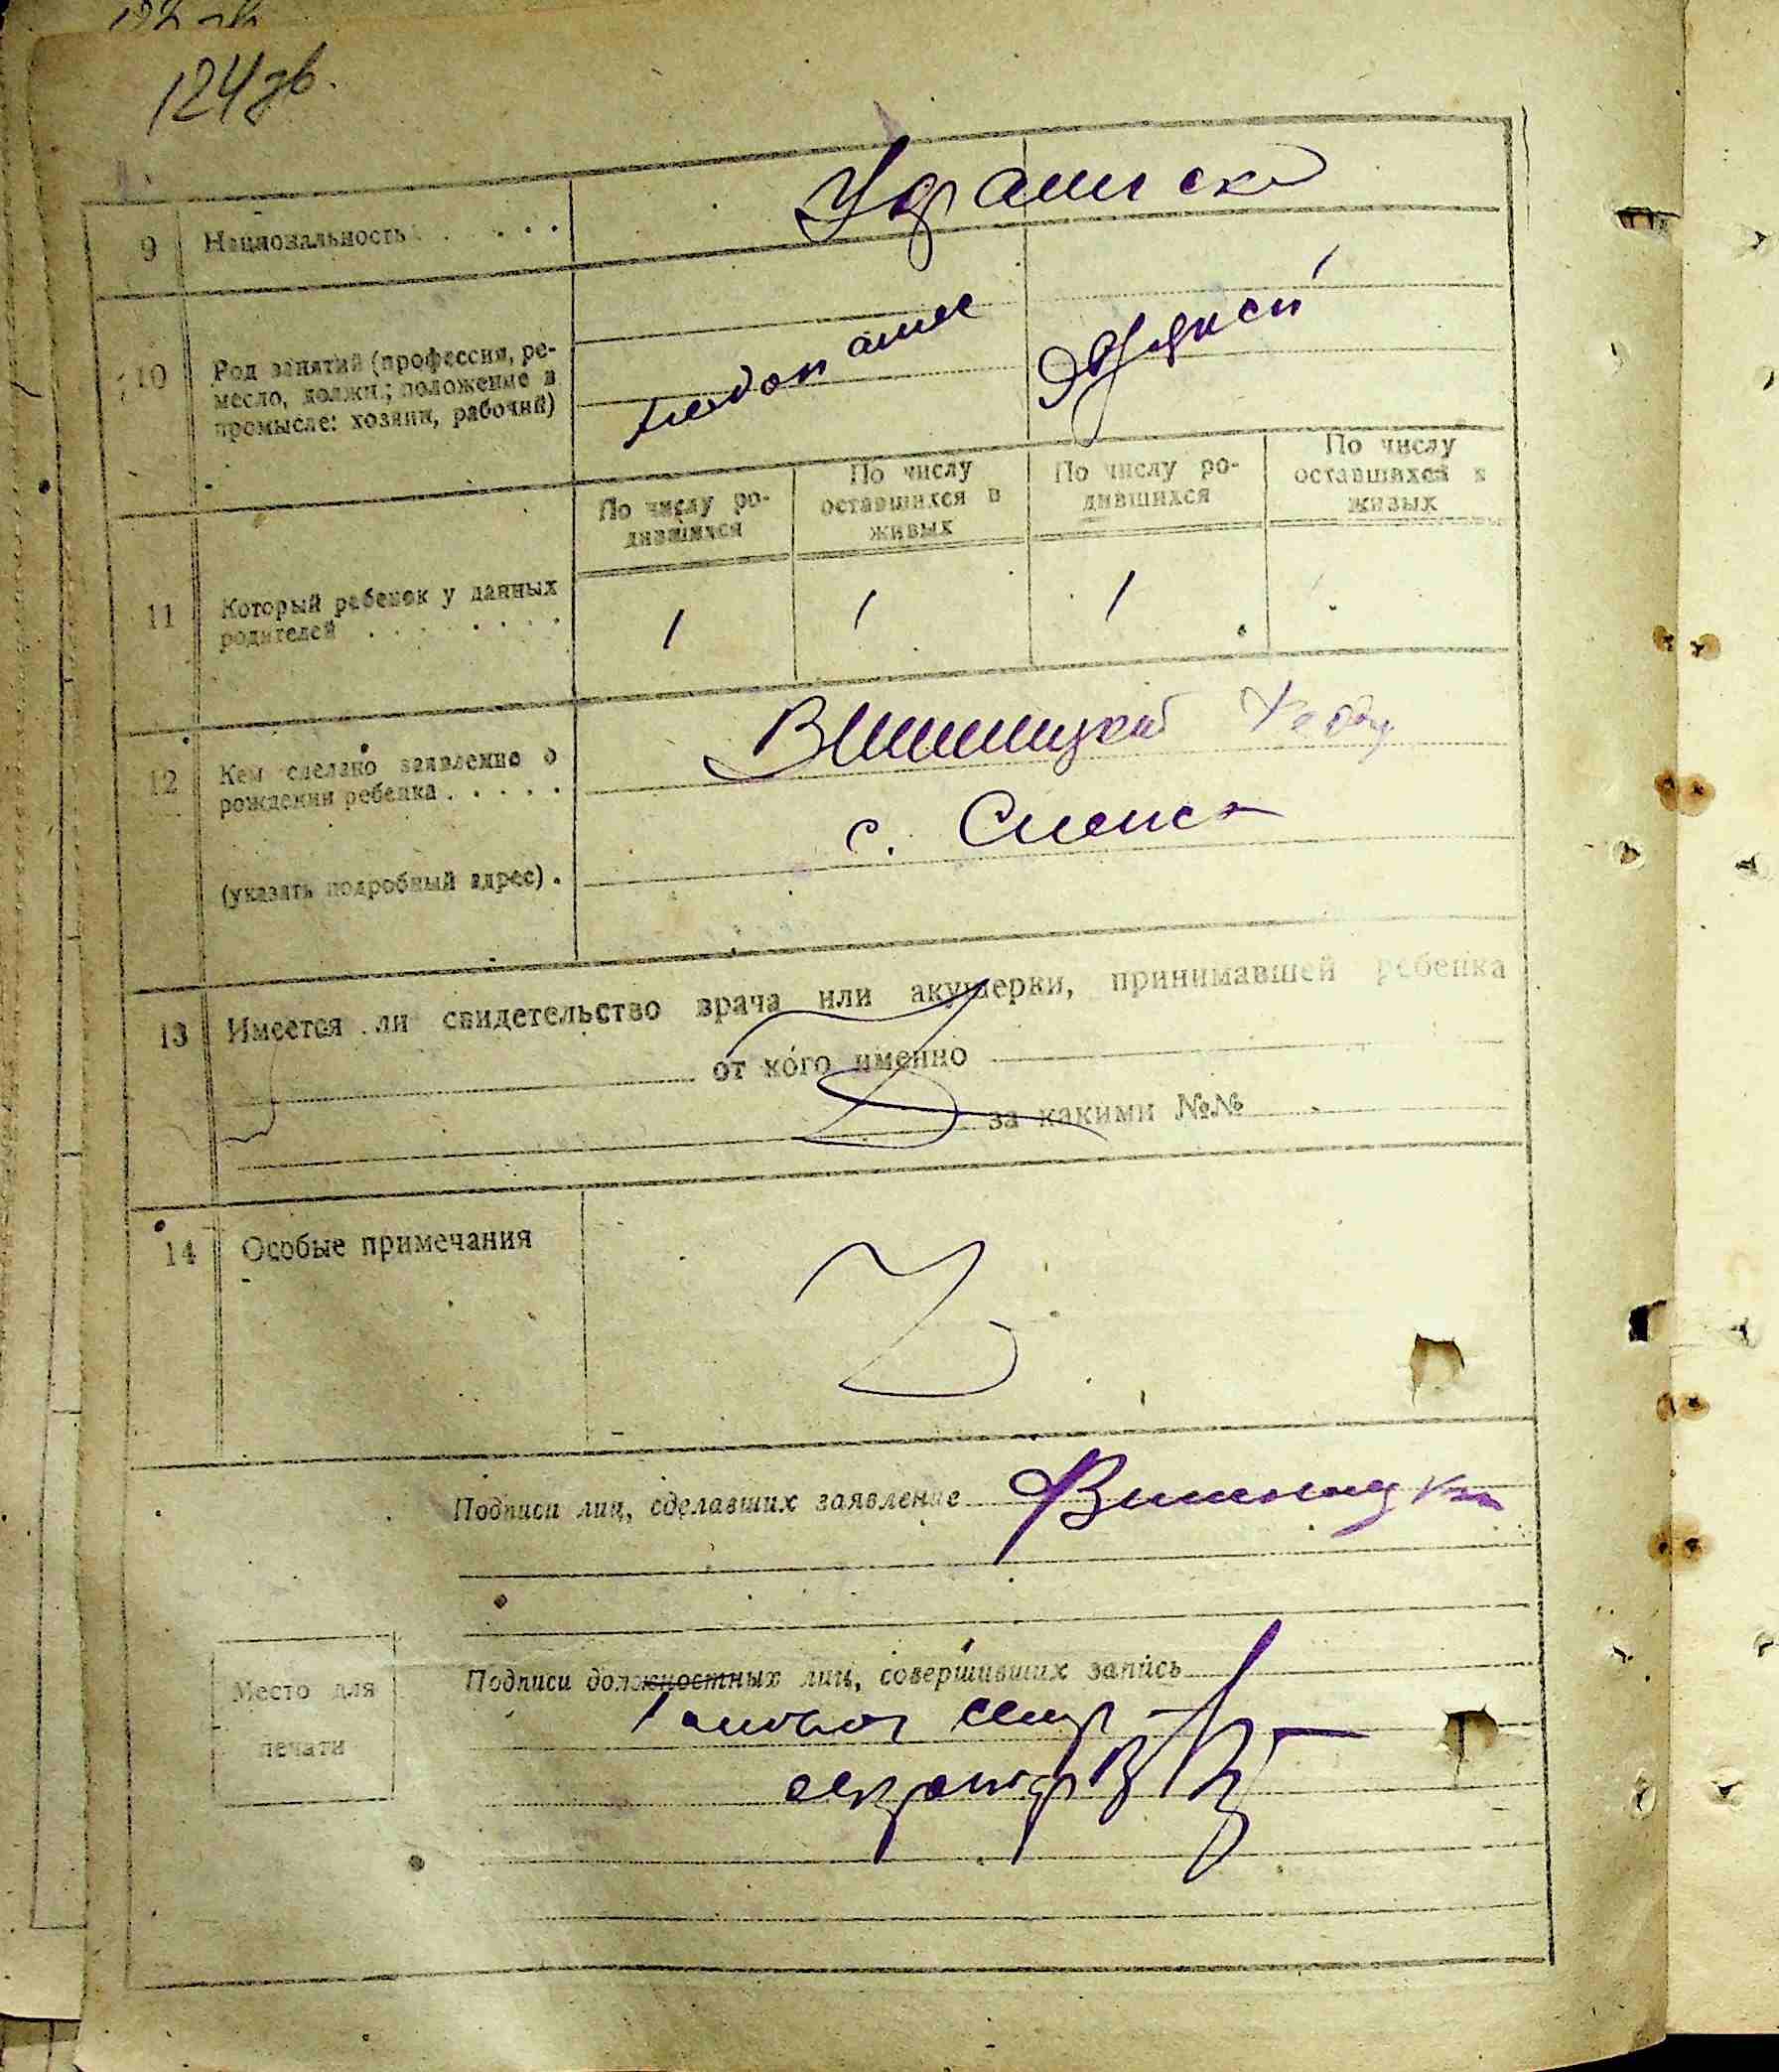 124 зв.
9 Национальность . . . . .
Украинск
10 Род занятий (профессия, ре-
месло, должн.; положение в
промысле: хозяин, рабочий)
По числу ро-
дившихся
По числу
оставшихся в
живых
По числу ро-
дившихся
По числу
оставшихся в
живых
11 Который ребенок у данных
родителей . . . . . . .
1 1 1
12 Кем сделано заявление о
рождении ребенка . . . . .
Винницкий
(указать подробный адрес) .
с.
13 Имеется ли свидетельство врача или акушерки, принимавшей ребенка
от кого именно
за какими №№
14 Особые примечания
Подписи лиц, сделавших заявление
Подписи должностных лиц, совершивших запись
Голова
секретар
Место для
печати